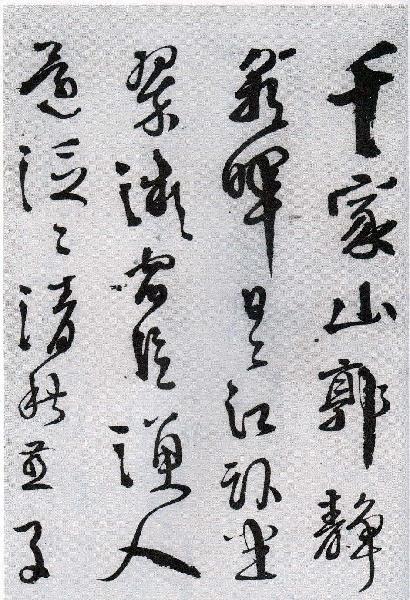 千家山郭靜
朝暉日〻江坐
翠微漁人
還泛〻清秋燕子